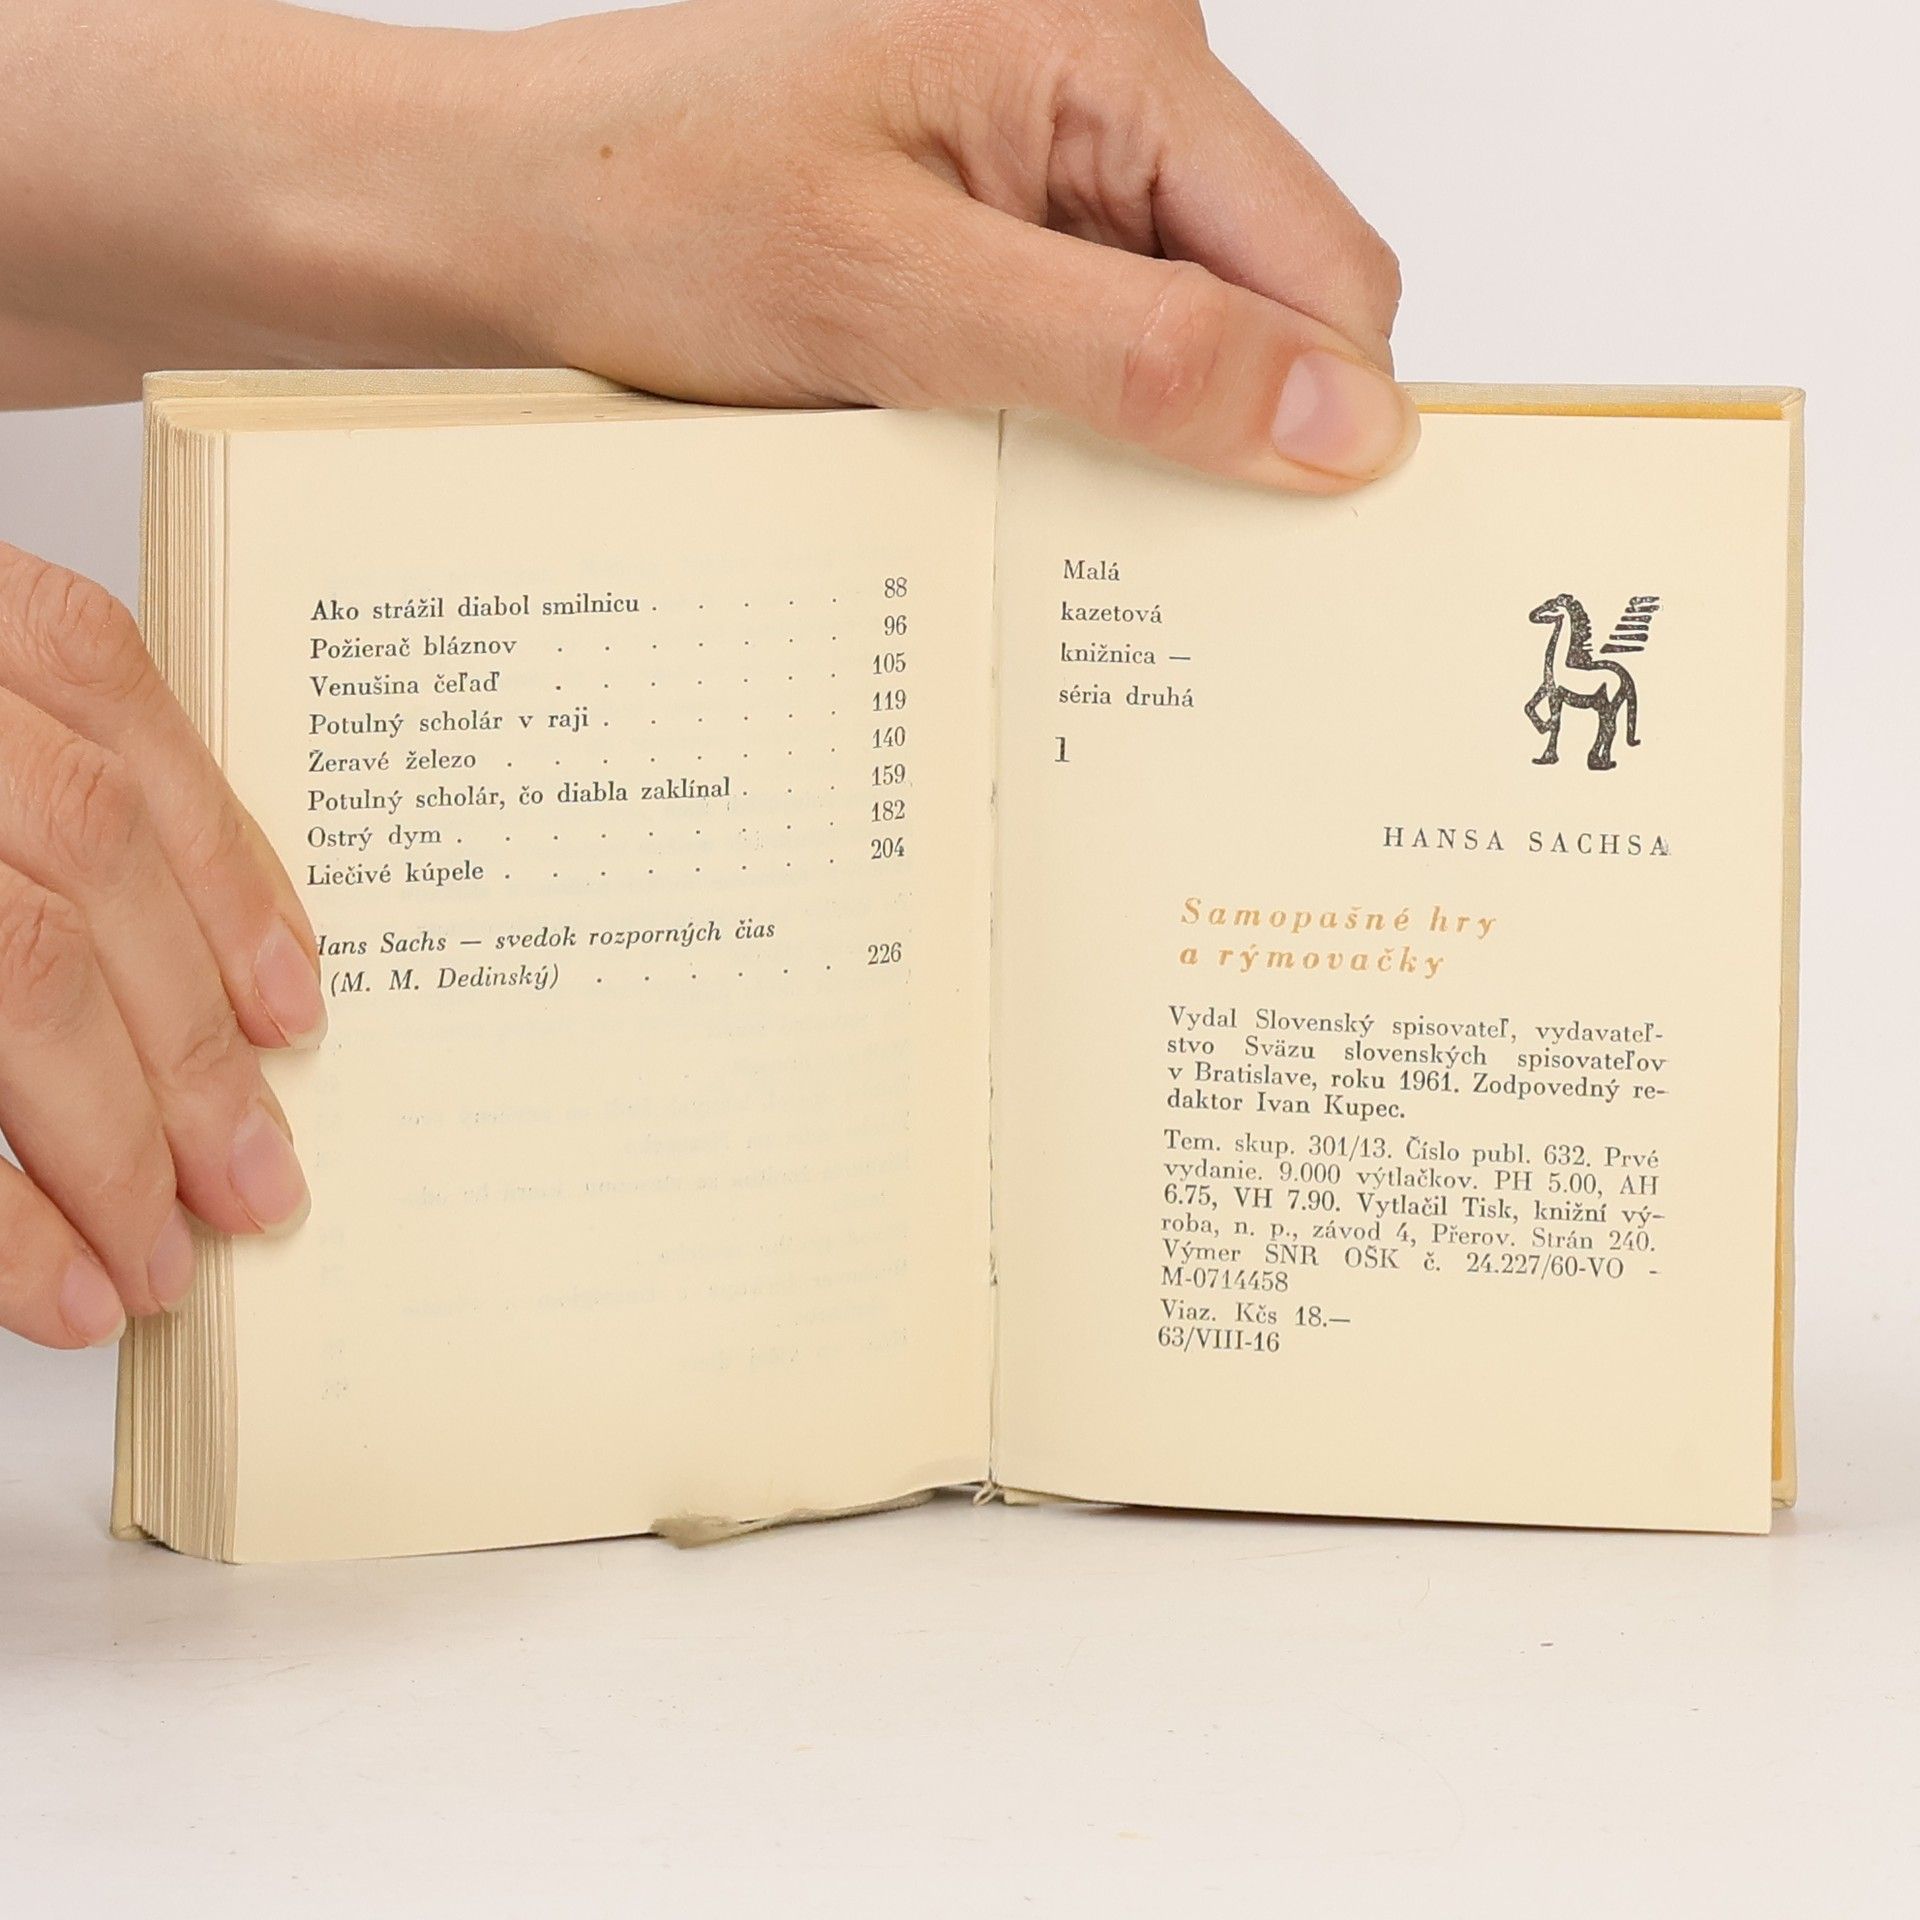 Ako strážil diabol smilnicu . . . . . 88
Požierač bláznov . . . . . . . 96
Venušina čeľaď . . . . . . . 105
Potulný scholár v raji . . . . . . 119
Žeravé železo . . . . . . . . 140
Potulný scholár, čo diabla zaklínal . . . 159
Ostrý dym . . . . . . . . . 182
Liečivé kúpele . . . . . . . . 204
Hans Sachs — svedok rozporných čias
(M. M. Dedinský) . . . . . . 226
Malá
kazetová
knižnica —
séria druhá
1
HANSA SACHSA
Samopašné hry
a rýmovačky
Vydal Slovenský spisovateľ, vydavateľ-
stvo Sväzu slovenských spisovateľov
v Bratislave, roku 1961. Zodpovedný re-
daktor Ivan Kupec.
Tem. skup. 301/13. Číslo publ. 632. Prvé
vydanie. 9.000 výtlačkov. PH 5.00, AH
6.75, VH 7.90. Vytlačil Tisk, knižní vý-
roba, n. p., závod 4, Přerov. Strán 240.
Výmer SNR OŠK č. 24.227/60-VO -
M-0714458
Viaz. Kčs 18.—
63/VIII-16